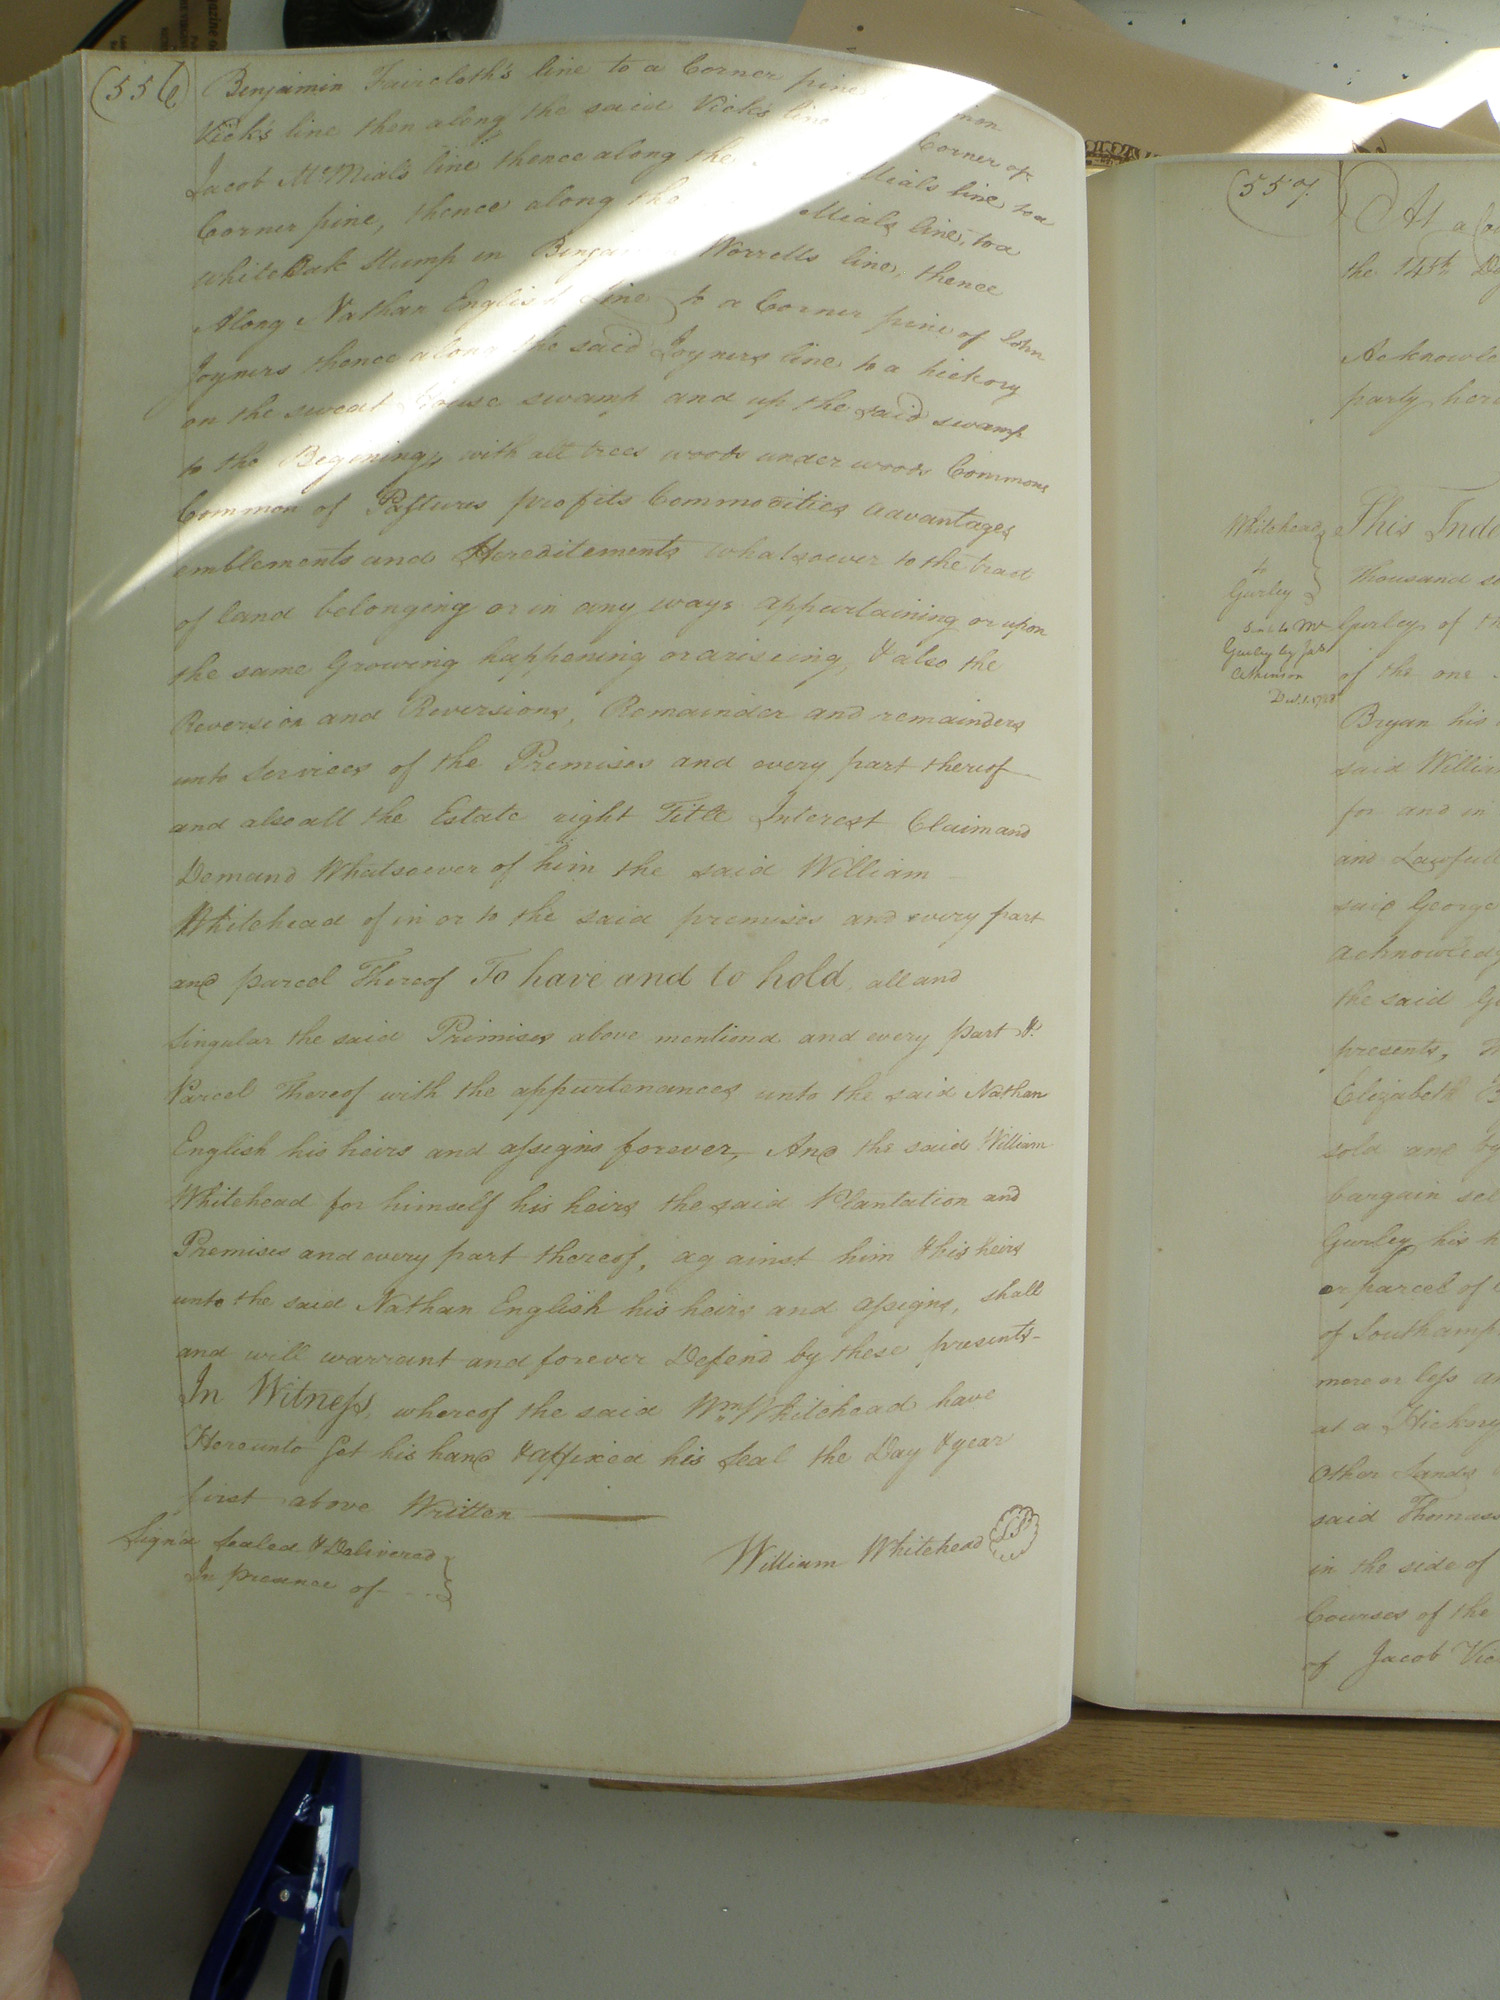 (556)
Benjamin Faircloth's line to a Corner pine
Vick's line then along the said Vick's line Corner of
Jacob McMials line thence along the Mials line to a
Corner pine, thence along the Mials line, to a
white Oak Stump in Worrells line, thence
Along Nathan English line to a Corner pine of John
Joyners thence along the said Joyners line to a hickory
on the sweat House swamp and up the said swamp
to the Begining, with all trees woods under woods Commons
Common of Pastures profits Commodities advantages
emblements and Hereditements whatsoever to the tract
of land belonging or in any ways appurtaining or upon
the same Growing happening or ariseing, & also the
Reversion and Reversions, Remainder and remainders
unto Services of the Premises and every part thereof
and also all the Estate right Title Interest Claim and
Demand Whatsoever of him the said William
Whitehead of in or to the said premises and every part
and parcel Thereof To have and to hold all and
Singular the said Primises above mentiond and every part &
Parcel Thereof with the appurtenances unto the said Nathan
English his heirs and assigns forever, And the said William
Whitehead for himself his heirs the said Plantation and
Premises and every part thereof, against him & his heirs
unto the said Nathan English his heirs and assigns, shall
and will warrant and forever Defend by these presents-
In Witness, whereof the said Wm Whitehead have
Hereunto Set his hand & affixed his Seal the Day & year
first above Written
Sign'd Sealed & Delivered
In presence of - - -
William Whitehead LS
557
At a
the 14th
Acknowle
party here
Whitehead
Gurley
This Inde
Thousand
Gurley of
of the one
Atkinson
Bryan his
said Willia
for and in
and Lawfull
said George
acknowledg
the said
presents,
Elizabeth
sold and by
bargain sel
Gurley his
or parcel of
of Southamp
more or less
at a Hickory
Other Lands
said Thomas
in the side of
Courses of the
of Jacob Vic